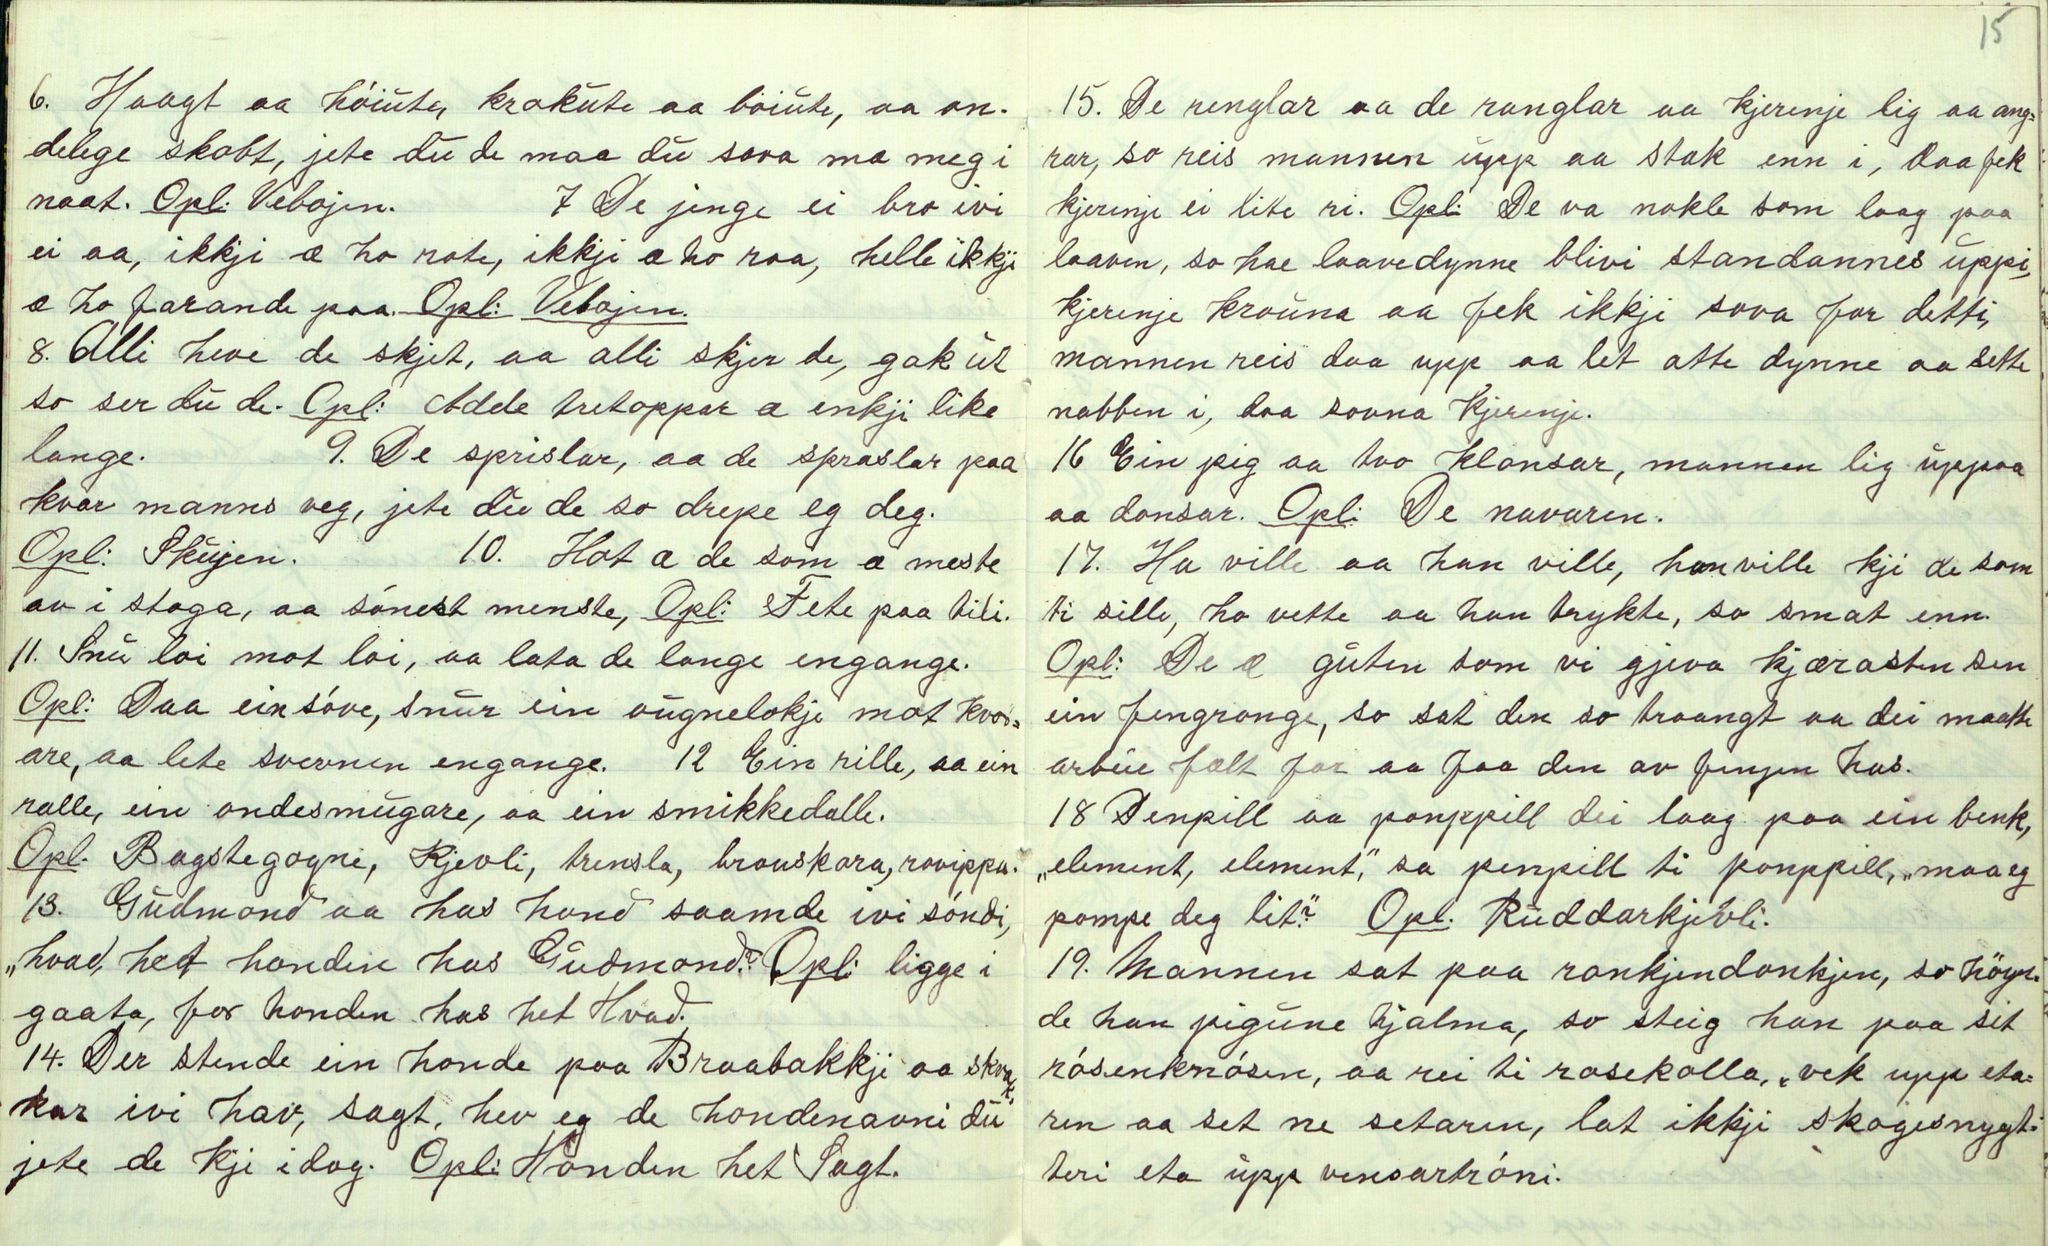 6. Haagt aa hóiŭte, krakŭte aa bóiŭte, aa on-
delege skabt, jete dŭ de maa dŭ sova ma meg i
naat. Opl: Vebojen. 7 De jenge ei bro ivi
ei aa, ikkji æ ho rote, ikkji æ ho raa, helle ikkji
æ ho farande paa. Opl: Vebojen.
8. Alli heve de skjet, aa alli skjer de, gak ŭt
so ser dŭ de. Opl: Adde tretoppar æ enkji like
lange. 9. De sprislar, aa de spraslar paa
kvar manns veg, jete dŭ de so drepe eg deg.
Opl: Skŭjen. 10. Hot æ de som æ meste
av i staga, aa sónest menste, Opl: Fete paa tili.
11. Snŭ loi mot loi, aa lata de lange engange.
Opl: Daa ein sóve, snŭr ein aŭgnelokje mot kvor-
are, aa lete svevnen engange. 12 Ein rille, aa ein
ralle, ein andesmŭgare, aa ein smikkedalle.
Opl. Bagstegogni, kjevli, trensla, trouskara, rovippa.
13. Gŭdmond aa has hond saamde ivi sóndi,
"hvad, het honden has Gŭdmond?" Opl: ligge i
gaata, for honden has het Hvad.
14. Der stende ein honde paa Braabakkji aa skvak-
kar ivi hav, sagt, hev eg de hondenavni dŭ
jete de kji idag. Opl: Honden het Sagt.
15
15. De renglar aa de ranglar aa kjerenje lig aa ang-
rar, so reis mannen ŭpp aa stak enn i, daa fek
kjerenje ei lite ri. Opl: De va nokle som laag paa
laaven, so hae laavedynne blivi standannes ŭppi,
kjerenje kroŭna aa fek ikkji sova for detti,
mannen reis daa upp aa let atte dynne aa sette
nabben i, daa sovna kjerenje.
16 Ein pig aa tvo klansar, mannen lig ŭppaa
aa dansar. Opl: De navaren.
17. Ha ville aa han ville, han ville kji de som
ti sille, ho vette aa han trykte, so smat enn.
Opl: De æ gŭten som vi gjeva kjærasten sen
ein fengronge, so sat den so traangt aa dei maatte
arbeie fælt for aa faa den av fengen has.
18 Penpill aa ponppill dei laag paa ein benk,
"element, element," sa penpill ti ponppill, "maa eg
pompe deg lit?" Opl. Rŭddarkjevli.
19. Mannen sat paa rankjendankjen, so höyr-
de han pigŭne hjalma, so steig han paa sit
rósenknósen, aa rei ti rosekolla, "vek upp eta-
ren aa set ne setaren, lat ikkji skogesnygt-
teri eta ŭpp vensartróni.